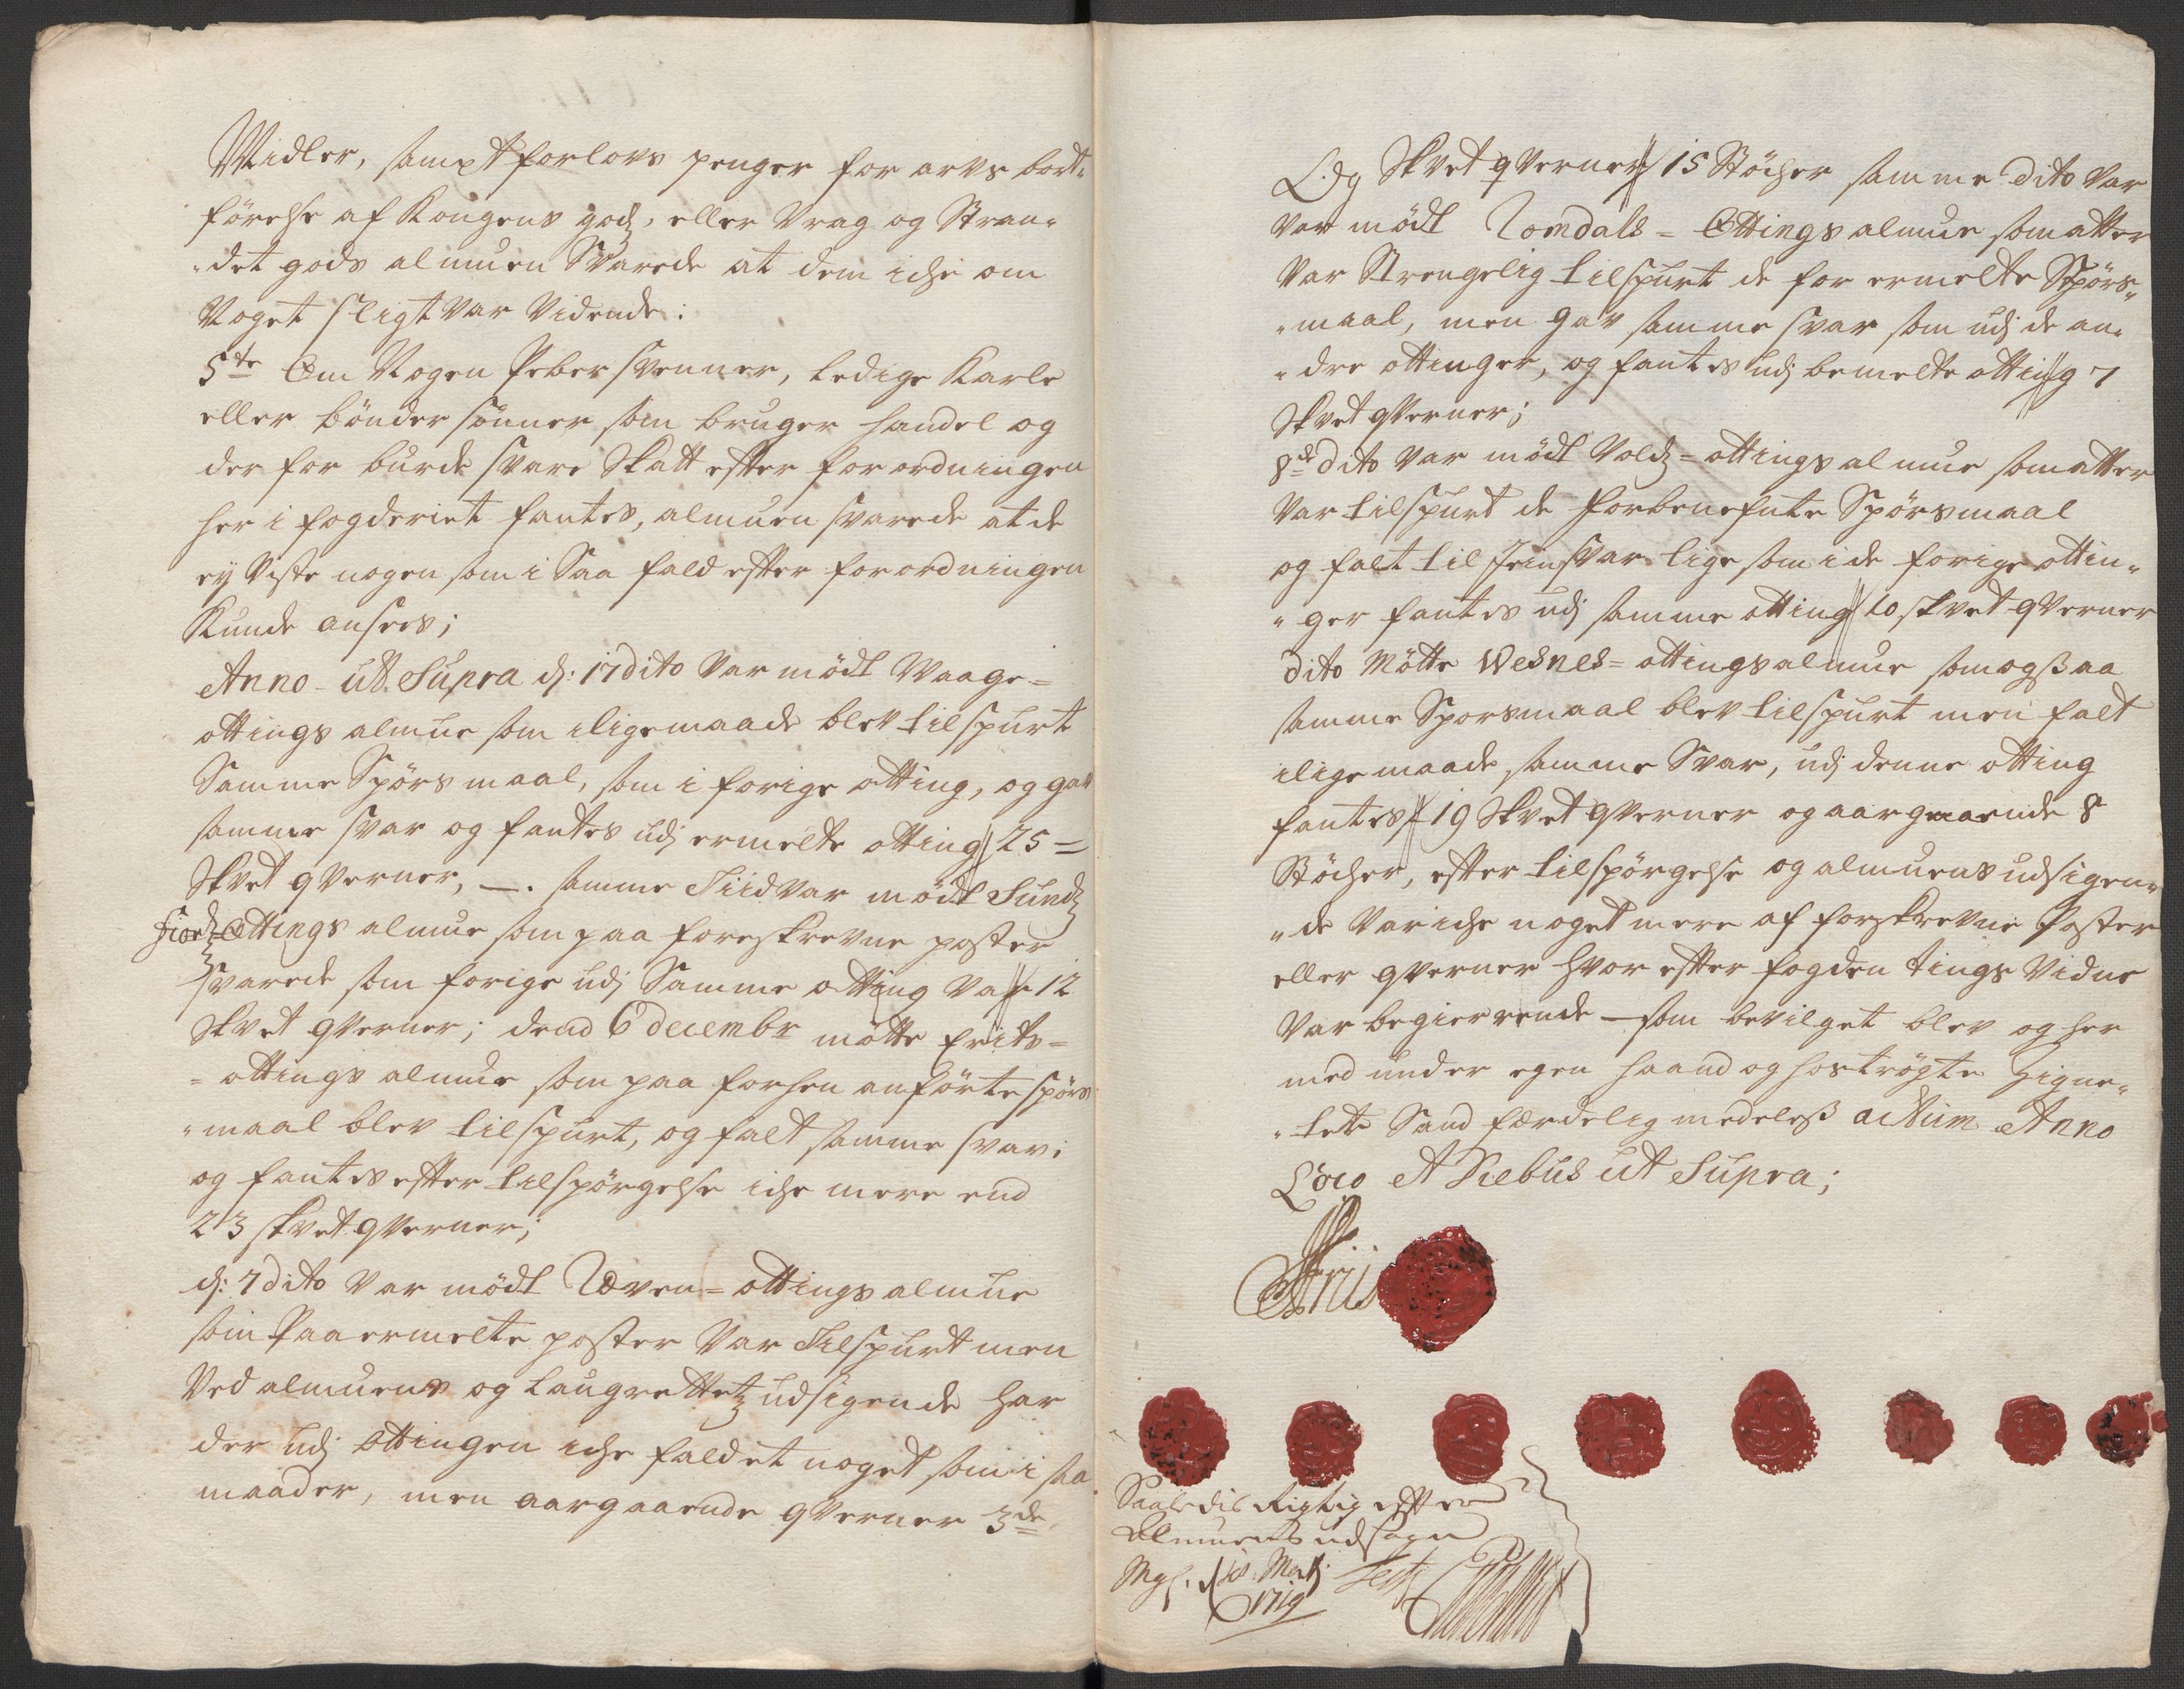 Midler, sampt forlovs penger for arvs bort¬
førelse af Kongens godz, eller Vrag og Stran¬
det gods almuen Svarede at dem iche om
Noget sligt var Vidende:
5te Om Nogen Pebersvenner, ledige Karle
eller bønder sønner som bruger handel og
der for burde svare Skatt efter forordningen
her i fogderiet fantes, almuen svarede at de
ey Viste nogen som i Saa fald efter forordningen
Kunde ansees;
Anno ut Supra d: 17 dito Var mødt Vaage=
ottings almue som iligemaade blev tilspurt
Samme Spørs maal, som i forige otting, og gav
samme svar og fantes udj ermelte otting 25 =
Skvet qverner, —. samme Tiid var mødt Sundz
fiordz Ottings almue som paa foreskrevne poster
svarede som forige udj Samme otting var 12
Skvet qverner; dend 6 decembr møtte Erits=
= ottings almue som paa forhen anførte spørs
maal blev tilspurt, og falt samme svar;
og fantes efter tilspørgelse iche mere end
23 skvet qverner;
d: 7 dito var mødt Røven= ottings almue
som Paa ermelte poster Var Tilspurt men
Ved almuens og Laugrettetz udsigende har
der udj Ottingen iche faldet noget som i saa
maader, men aargaaende qverner 3de
Og Skvet qverner 15 Støcher samme dito var
var mødt Romdals = Ottings almue som atter
Var Strengelig tilspurt de for ermelte Spørs¬
maal, men gav samme svar som udj de an¬
dre ottinger, og fantes udj bemelte otting 7
Skvet qverner;
8de dito Var mødt Voldz = ottings almue som atter
Var tilspurt de forbenefnte Spørsmaal
og falt til Jeinsvar lige som i de forige ottin¬
ger fantes udj samme otting 10 skvet qverner
dito Møtte Vesnes= ottings almue som ogsaa
samme Sporsmaal blev tilspurt men falt
iligemaade samme Svar, udj denne otting
fantes 19 Skvet qverner og aargaaende 8
Støcher, efter tilspørgelse og almuens udsigen¬
de Var iche noget mere af forskrevne Poster
eller qverner hvor efter fogden tings Vidne
Var begierrende — som bevilget blev og her
med under egen haand og hostrøgte Zigne¬
tets Sand færdelig medeless actum Anno
Loco et Diebus ut Supra;
Friis
Saaledis Rigtig efter
Almuens udsagn
1719